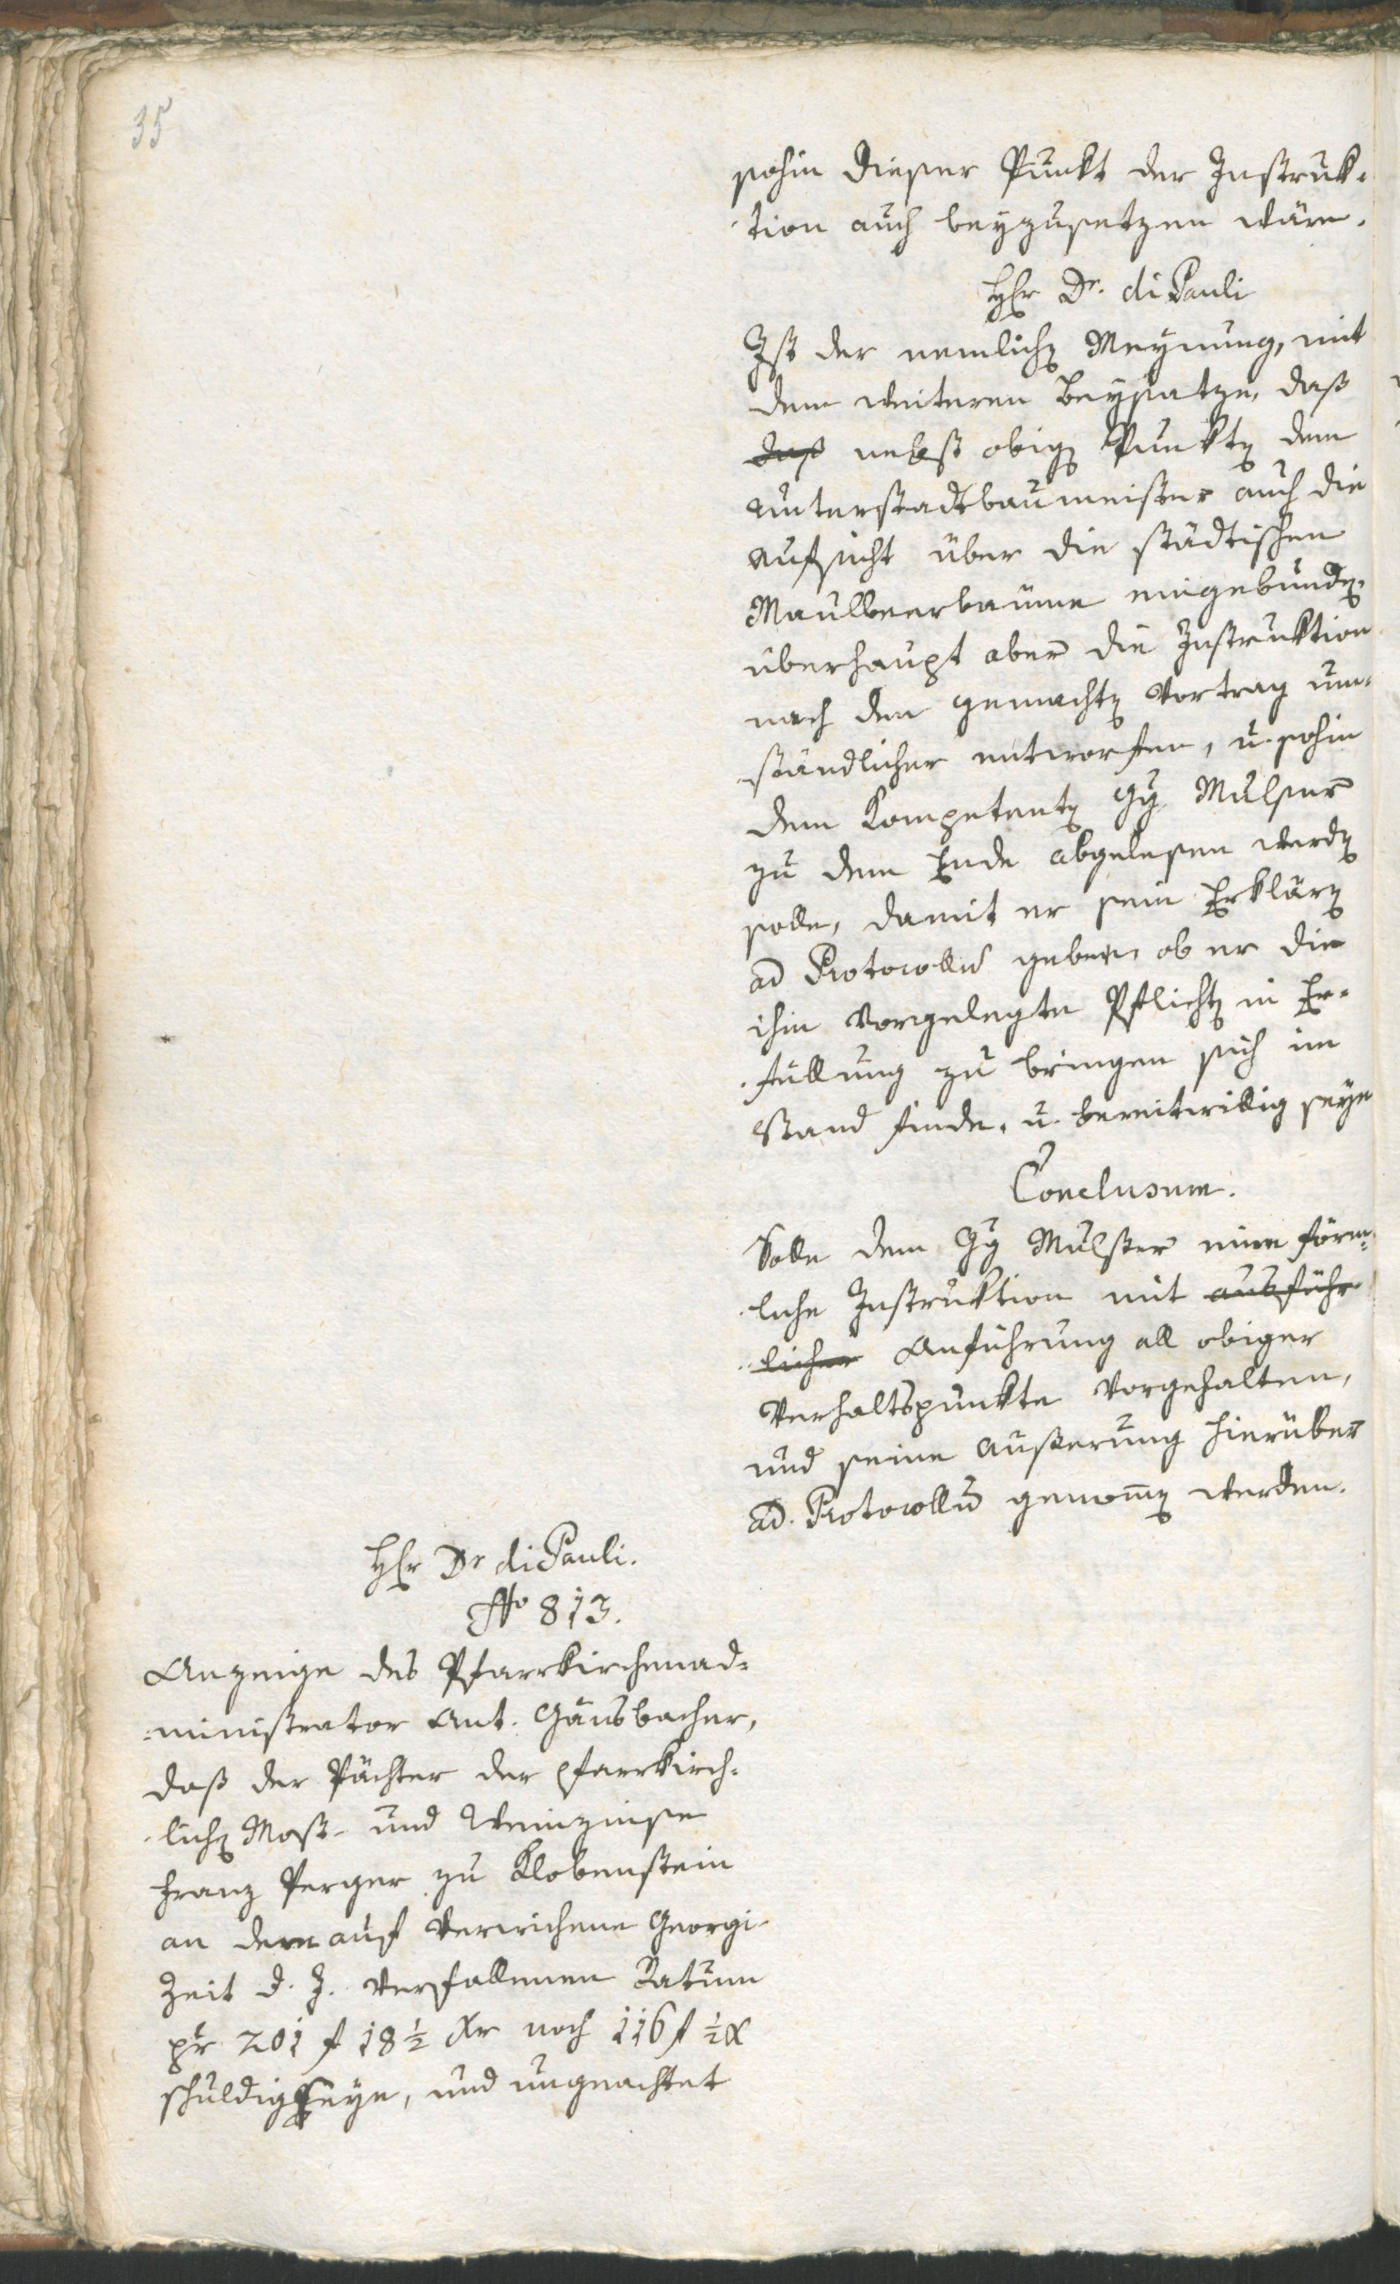 35
sohin dieser Punkt der Instruk-
tion auch beyzusetzen wäre.
Hr Dr. di Pauli
Ist der nemlichen Meynung, mit
dem weiteren Beysatze, daß
daß nebst obigen Punkten dem
Unterstadtbaumeister auch die
Aufsicht über die städtischen
Maulbeerbäume eingebunden,
überhaupt aber die Instruktion
nach den gemachten Vortrag um-
ständlicher entworfen, u. sohin
dem Kompetenten Gg Mulser
zu dem Ende abgelesen werden
solle, damit er sein Erklären
ad Protocollum geben ob er die
ihm vorgelegte Pflichten in Er-
füllung zu bringen sich im
Stand finde, u. bereitwillig seye
Conclusum.
Solle dem Gg Mulser eine förm-
liche Instruktion mit ausführ-
licher Anführung all obiger
Verhaltspunkte vorgehalten,
und seine Außerung hierüber
ad Protocollum genommen werden.
Hr Dr di Pauli.
No 813.
Anzeige des Pfarrkirchenad-
ministrator Ant. Gänsbacher,
daß der Pächter der pfarrkirch-
lichen Most- und Weinzinse
Franz Perger zu Klobenstein
an dem auf verwichene Georgi-
Zeit d. J. verfallenen Datum
pr 201 f 18 ½ Xr noch 116 f ½ X
schuldig seye, und ungeachtet